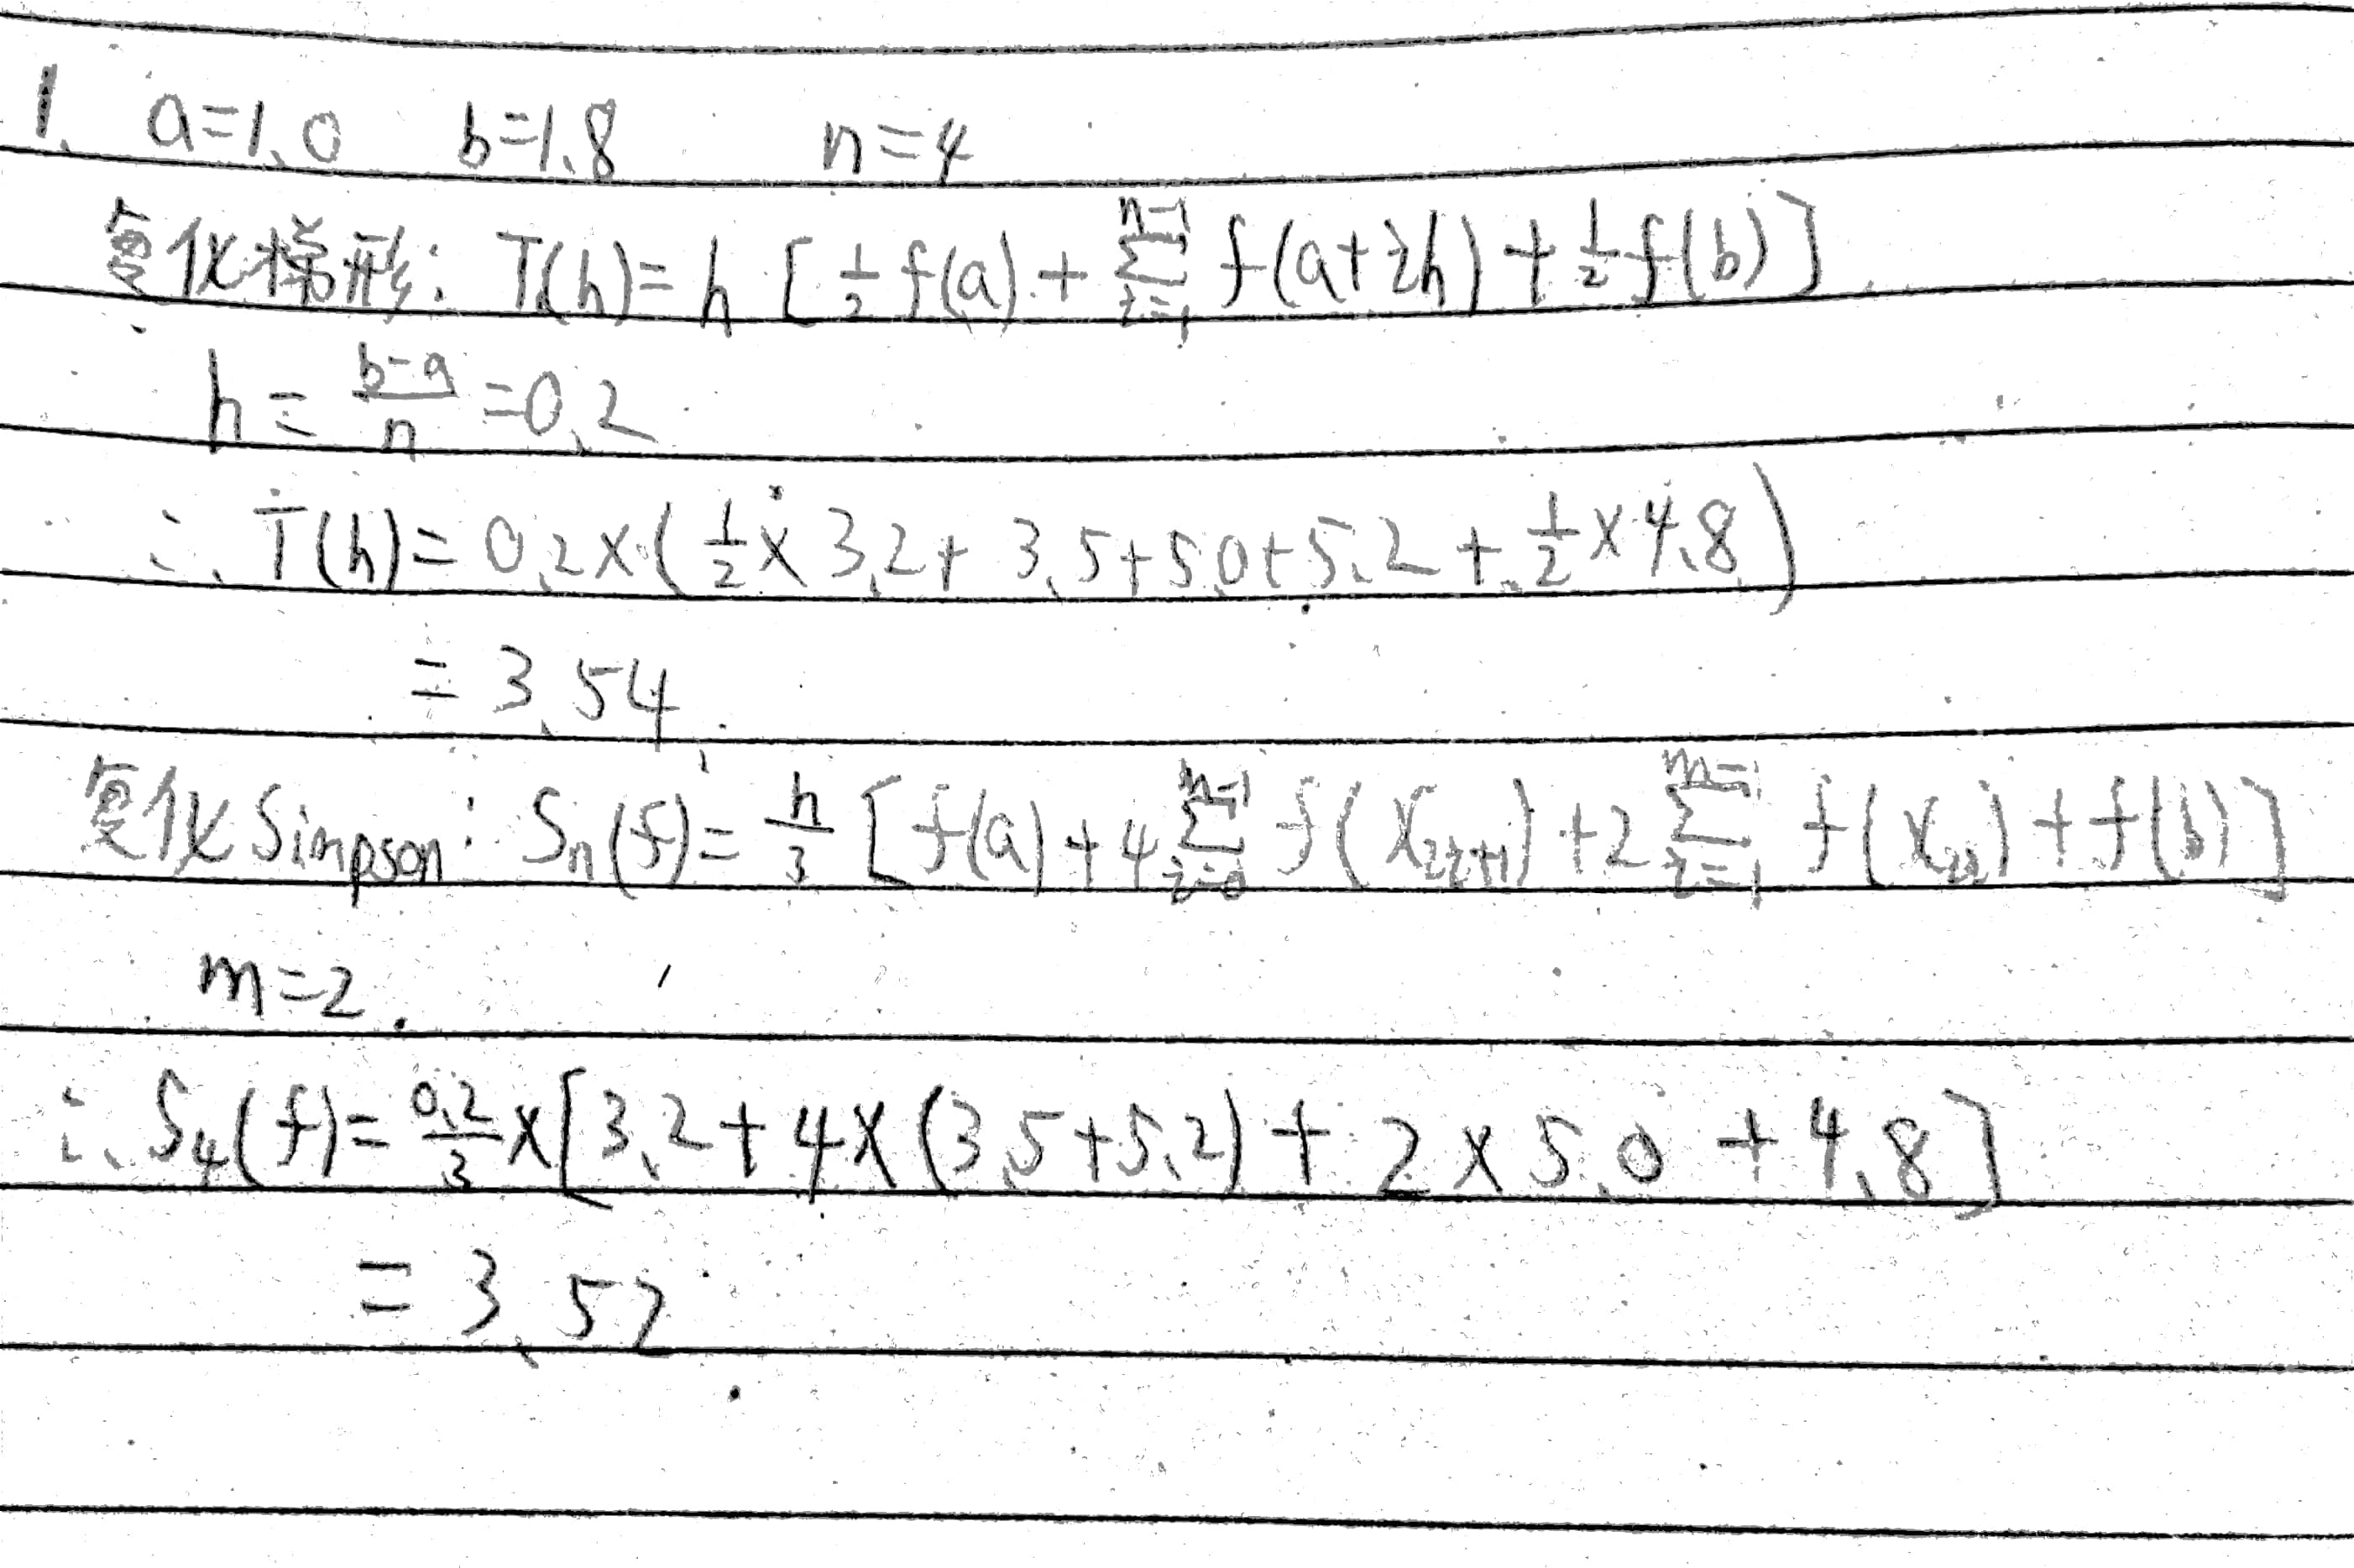 1. a=1.0 b=1.8 n=4
复化梯形: T(h)=h[½f(a)+∑_{i=1}^{n-1} f(a+ih)+½f(b)]
h=(b-a)/n=0.2
∴ T(h)=0.2×(½×3.2+3.5+5.0+5.2+½×4.8)
=3.54.
复化Simpson: Sₙ(f)=h/3[f(a)+4∑_{i=0}^{m-1} f(x_{2i+1})+2∑_{i=1}^{m-1} f(x_{2i})+f(b)]
m=2.
∴ S₄(f)=0.2/3×[3.2+4×(3.5+5.2)+2×5.0+4.8]
=3.52